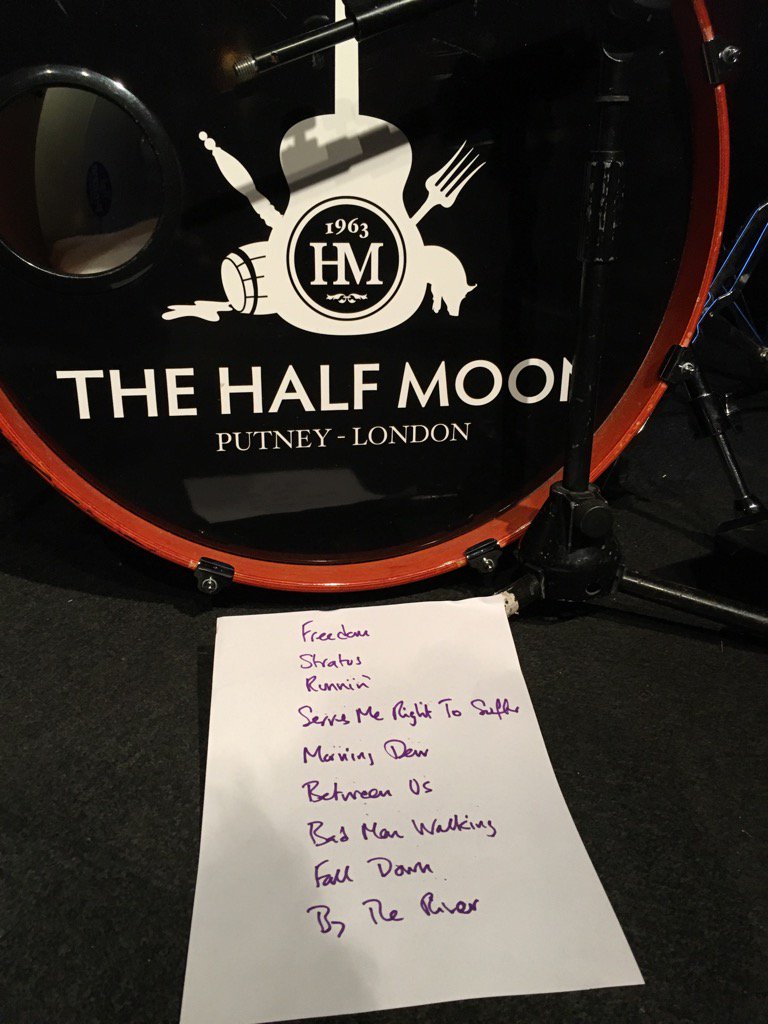 1963
HM
THE HALF MOON
PUTNEY - LONDON
Freedom
Stratus
Runnin'
Serves Me Right To Suffer
Morning Dew
Between Us
Bad Man Walking
Fall Down
By The River